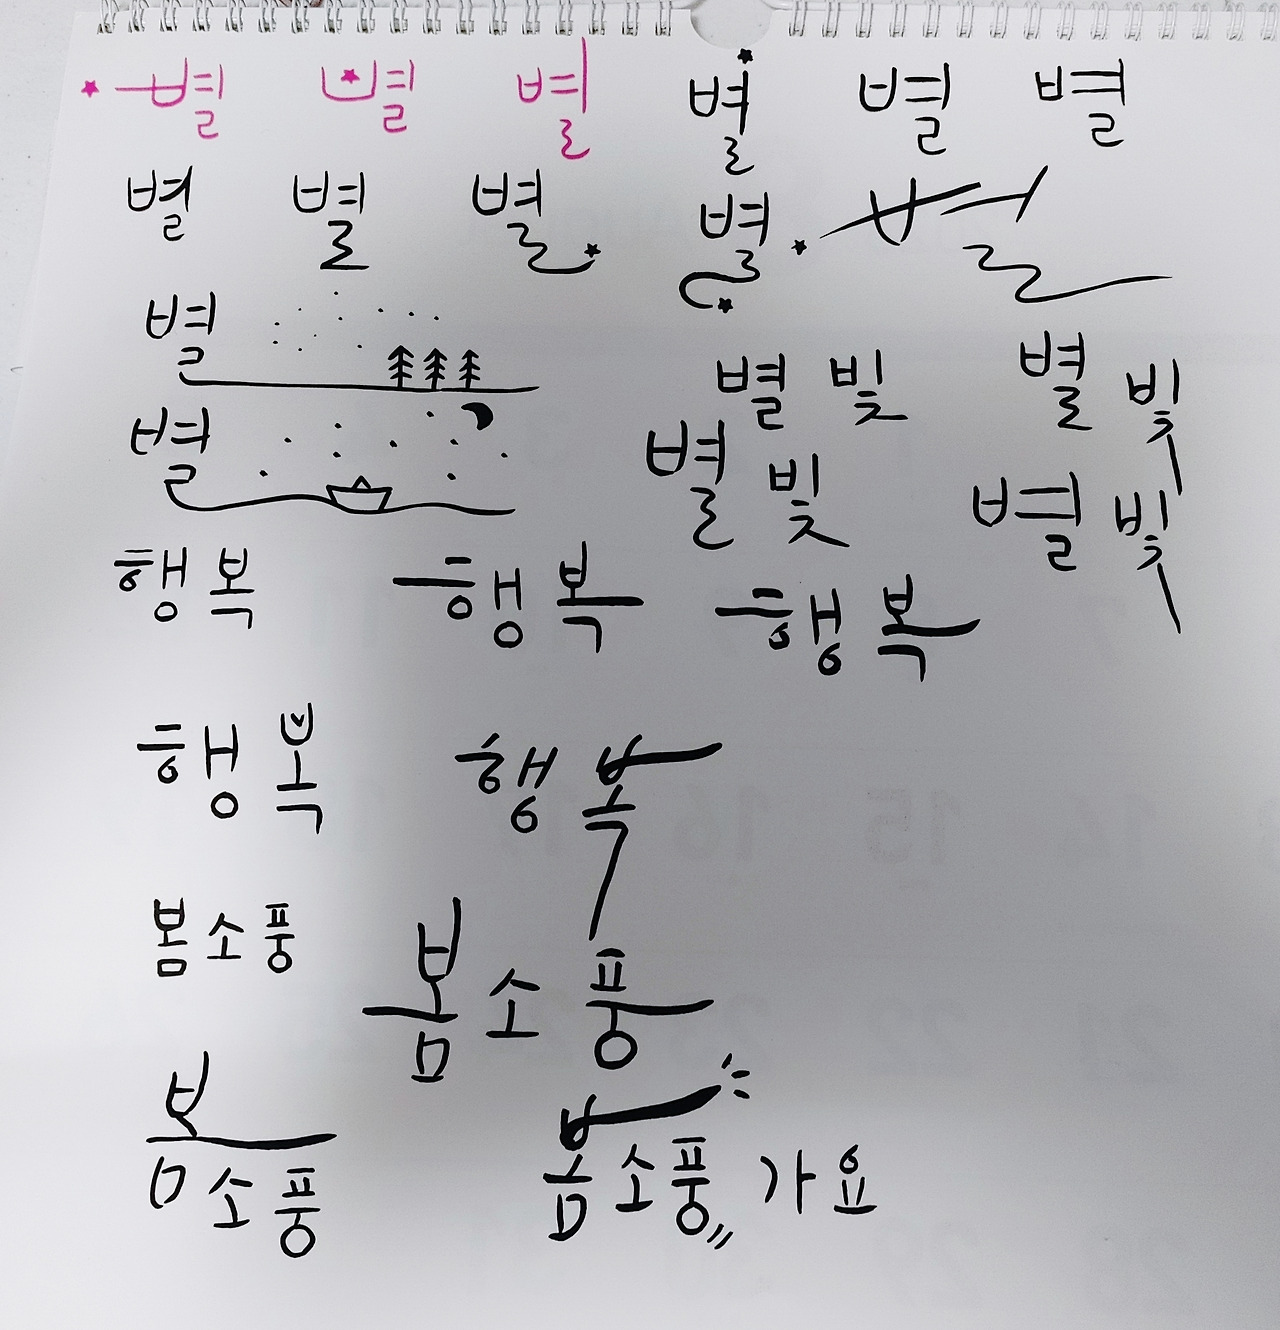 별 별 별 별 별 별
별 별 별 별 별
별
별 빛 별 빛
별
별 빛 별 빛
행 복 행 복 행 복
행 복 행 복
봄 소 풍 봄 소 풍
봄 소 풍 봄 소 풍 가 요